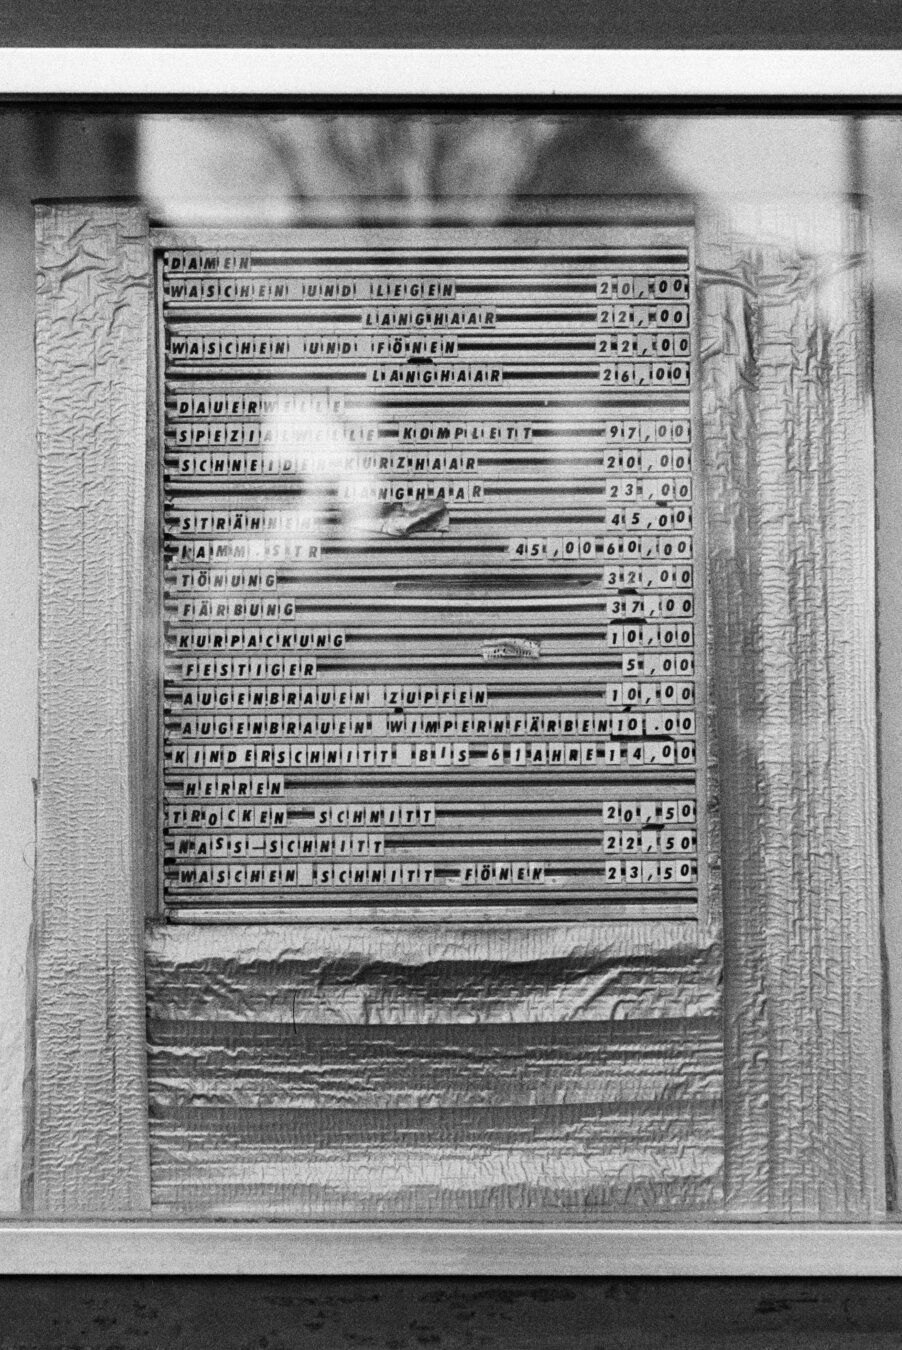 DAMEN
WASCHEN UND LEGEN 20,00
LANGHAAR 22,00
WASCHEN UND FÖNEN 22,00
LANGHAAR 26,00
DAUERWELLE
SPEZIALWELLE KOMPLETT 97,00
SCHNEIDEN KURZHAAR 20,00
LANGHAAR 23,00
STRÄHNEN 45,00
KAMM.STR 45,00 60,00
TÖNUNG 32,00
FÄRBUNG 37,00
KURPACKUNG 10,00
FESTIGER 5,00
AUGENBRAUEN ZUPFEN 10,00
AUGENBRAUEN WIMPERNFÄRBEN 10.00
KINDERSCHNITT BIS 6 JAHRE 14,00
HERREN
TROCKEN SCHNITT 20,50
NASS-SCHNITT 22,50
WASCHEN SCHNITT FÖNEN 23,50